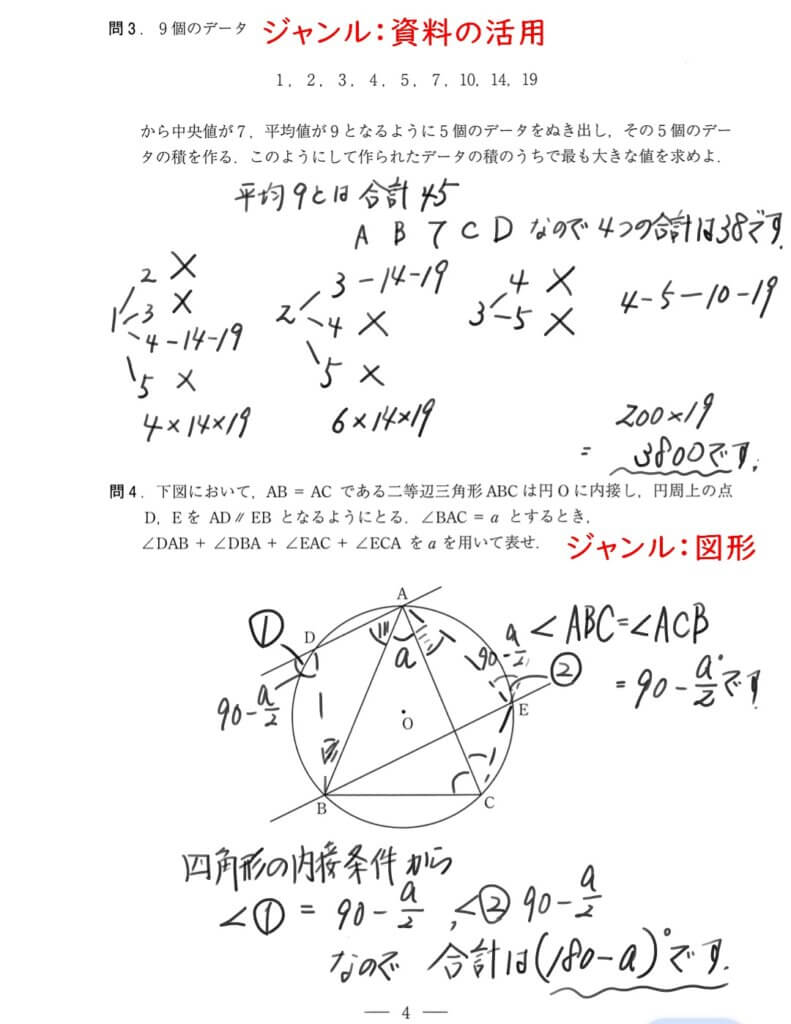 問3．9個のデータ ジャンル：資料の活用
1，2，3，4，5，7，10，14，19
から中央値が7，平均値が9となるように5個のデータをぬき出し，その5個のデー
タの積を作る．このようにして作られたデータの積のうちで最も大きな値を求めよ．
平均9とは合計45
A B 7 C D なので 4つの合計は38です.
1 2 ×
3 ×
4-14-19
5 ×
4×14×19
2 3-14-19
4 ×
5 ×
6×14×19
3 4 ×
5 ×
4-5-10-19
200×19
= 3800です.
問4．下図において，AB = AC である二等辺三角形ABCは円Oに内接し，円周上の点
D，Eを AD∥EB となるようにとる．∠BAC = a とするとき，
∠DAB + ∠DBA + ∠EAC + ∠ECA をaを用いて表せ． ジャンル：図形
A
①
D
a
90-a/2
90-a/2
②
E
O
B
C
∠ABC=∠ACB
= 90-a/2°です
四角形の内接条件から
∠① = 90-a/2 , ∠② 90-a/2
なので 合計は(180-a)°です.
— 4 —